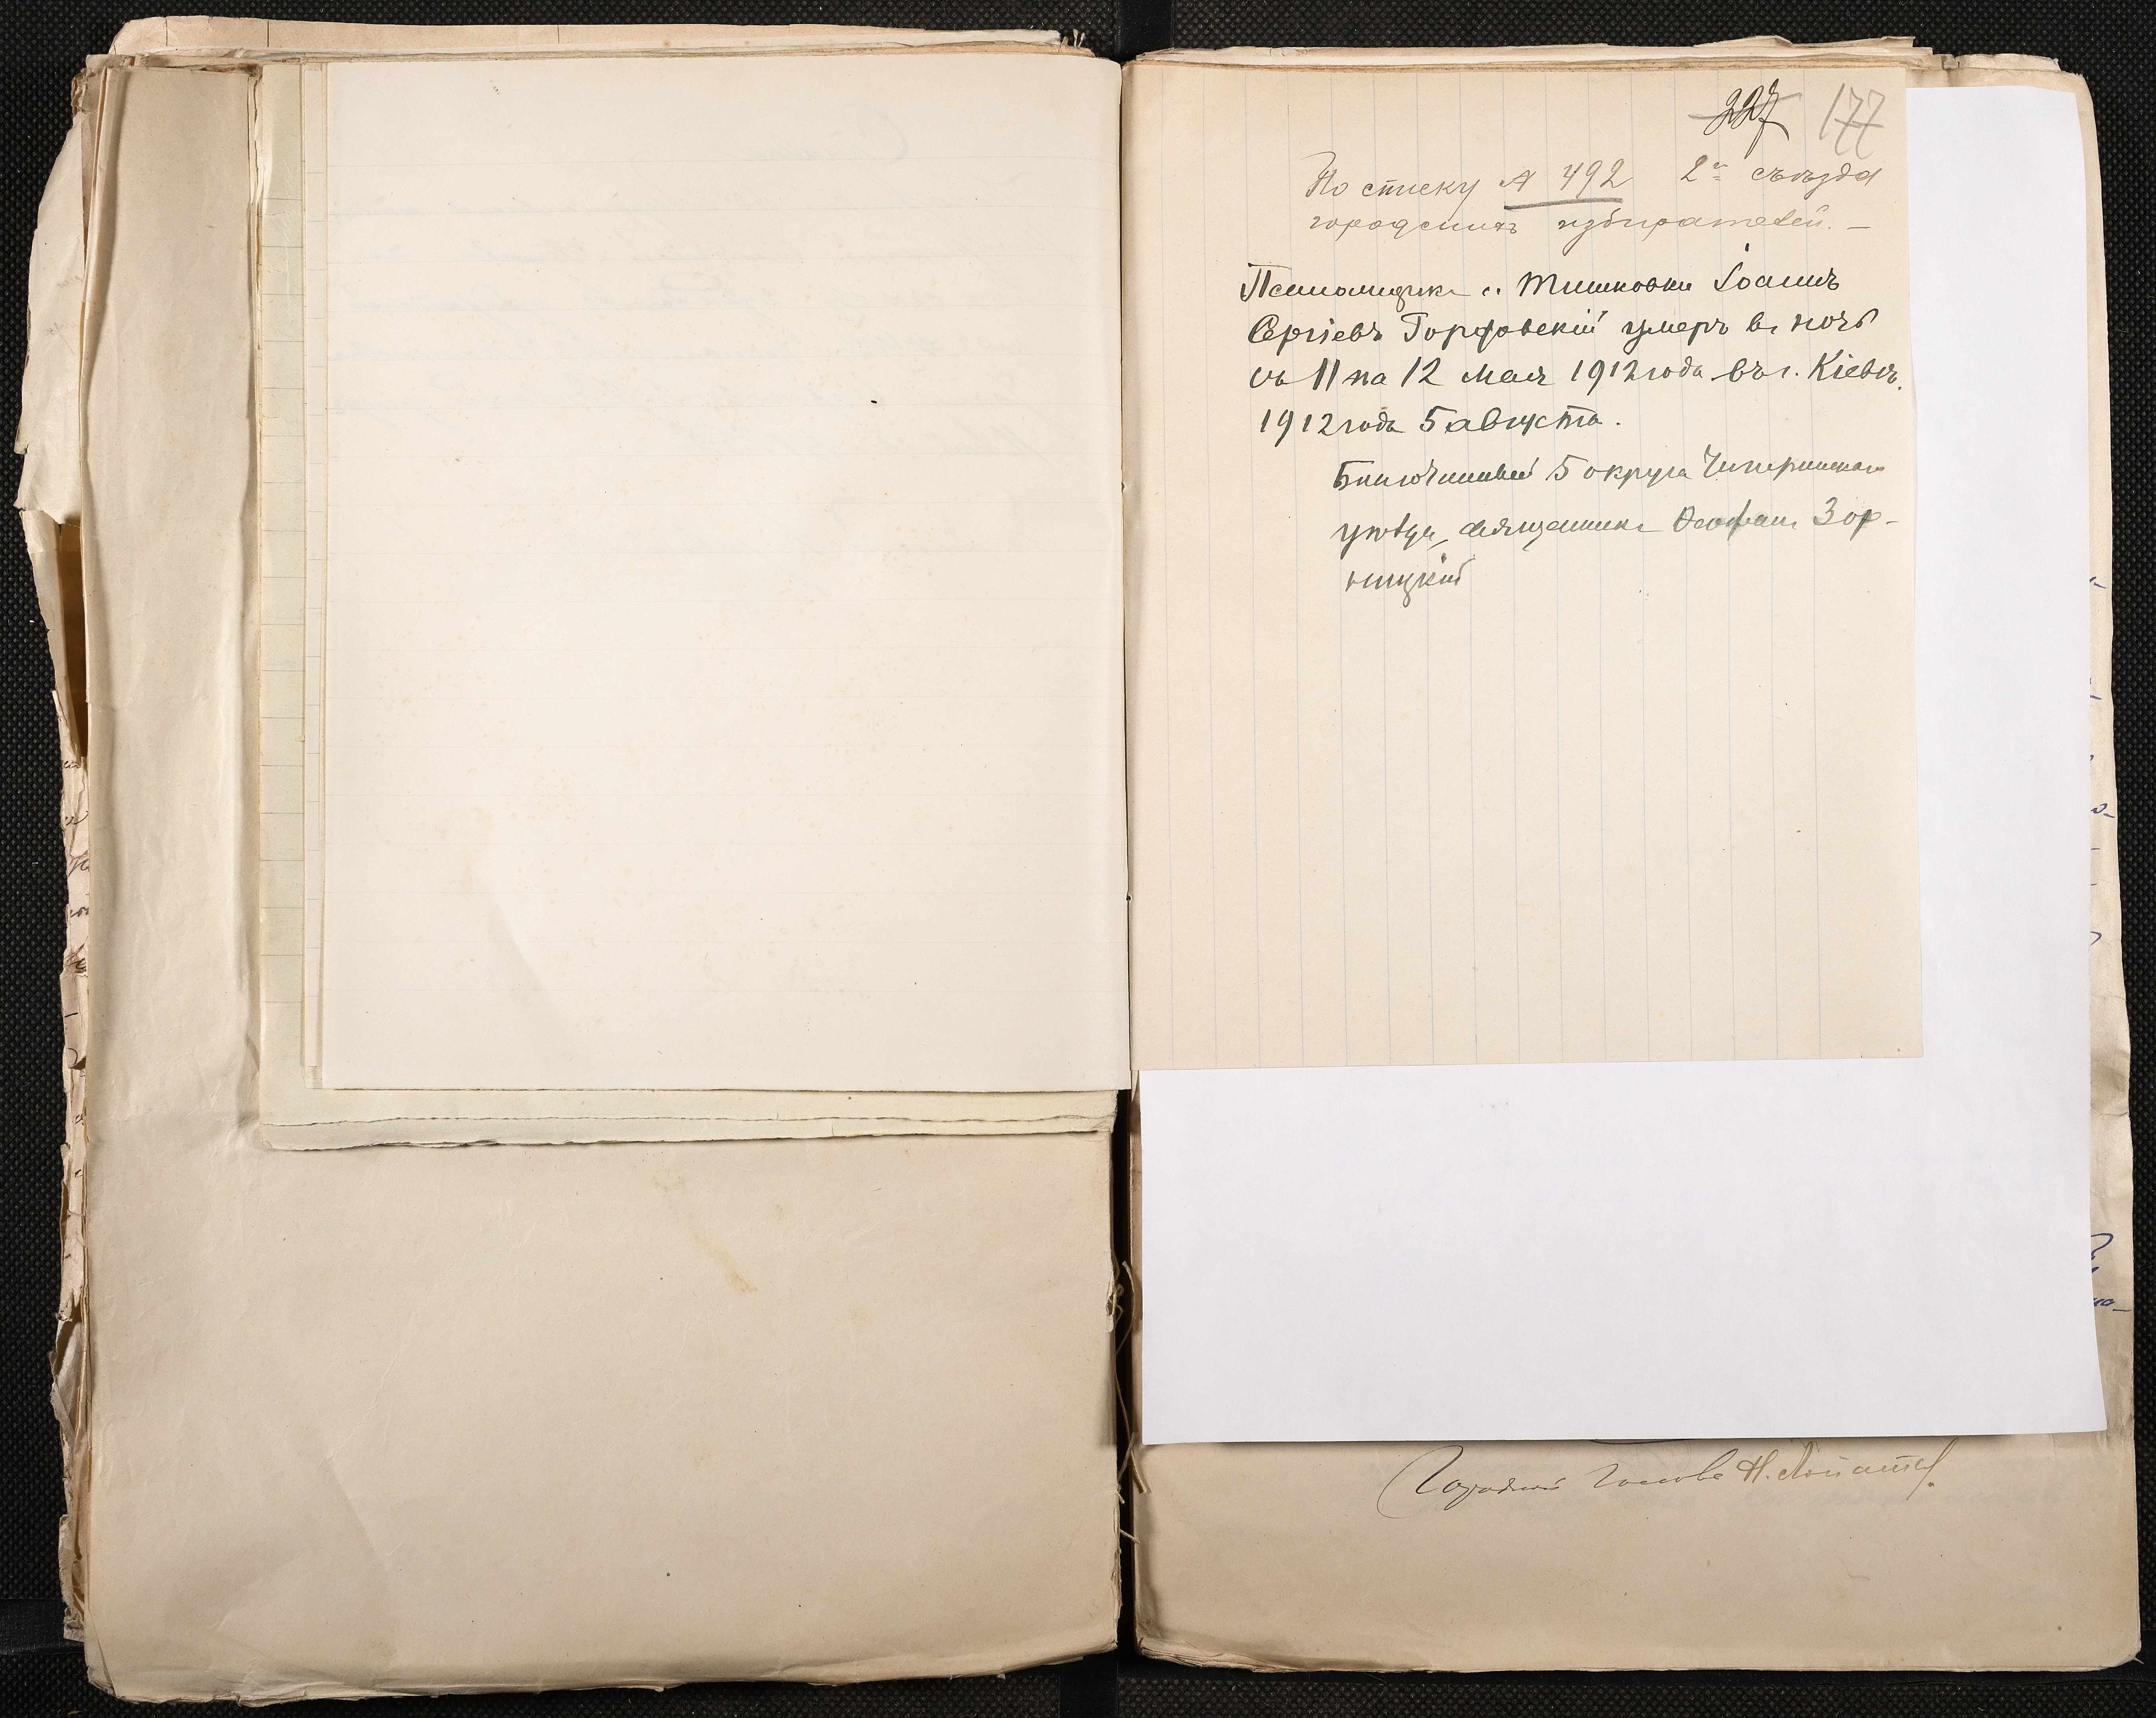 227 177
По списку № 492 2го съезда
городскихъ избирателей. —
Псаломщикъ с. Тишковки Іоаннъ
Сергіевъ Горфовскій умеръ въ ночь
съ 11 на 12 мая 1912 года въ г. Кіевѣ.
1912 года 5 августа.
Благочинный 5 округа Чигиринскаго
уѣзда, священникъ Ѳеофанъ Зор-
ницкій
Городской Голова Н. Лопата